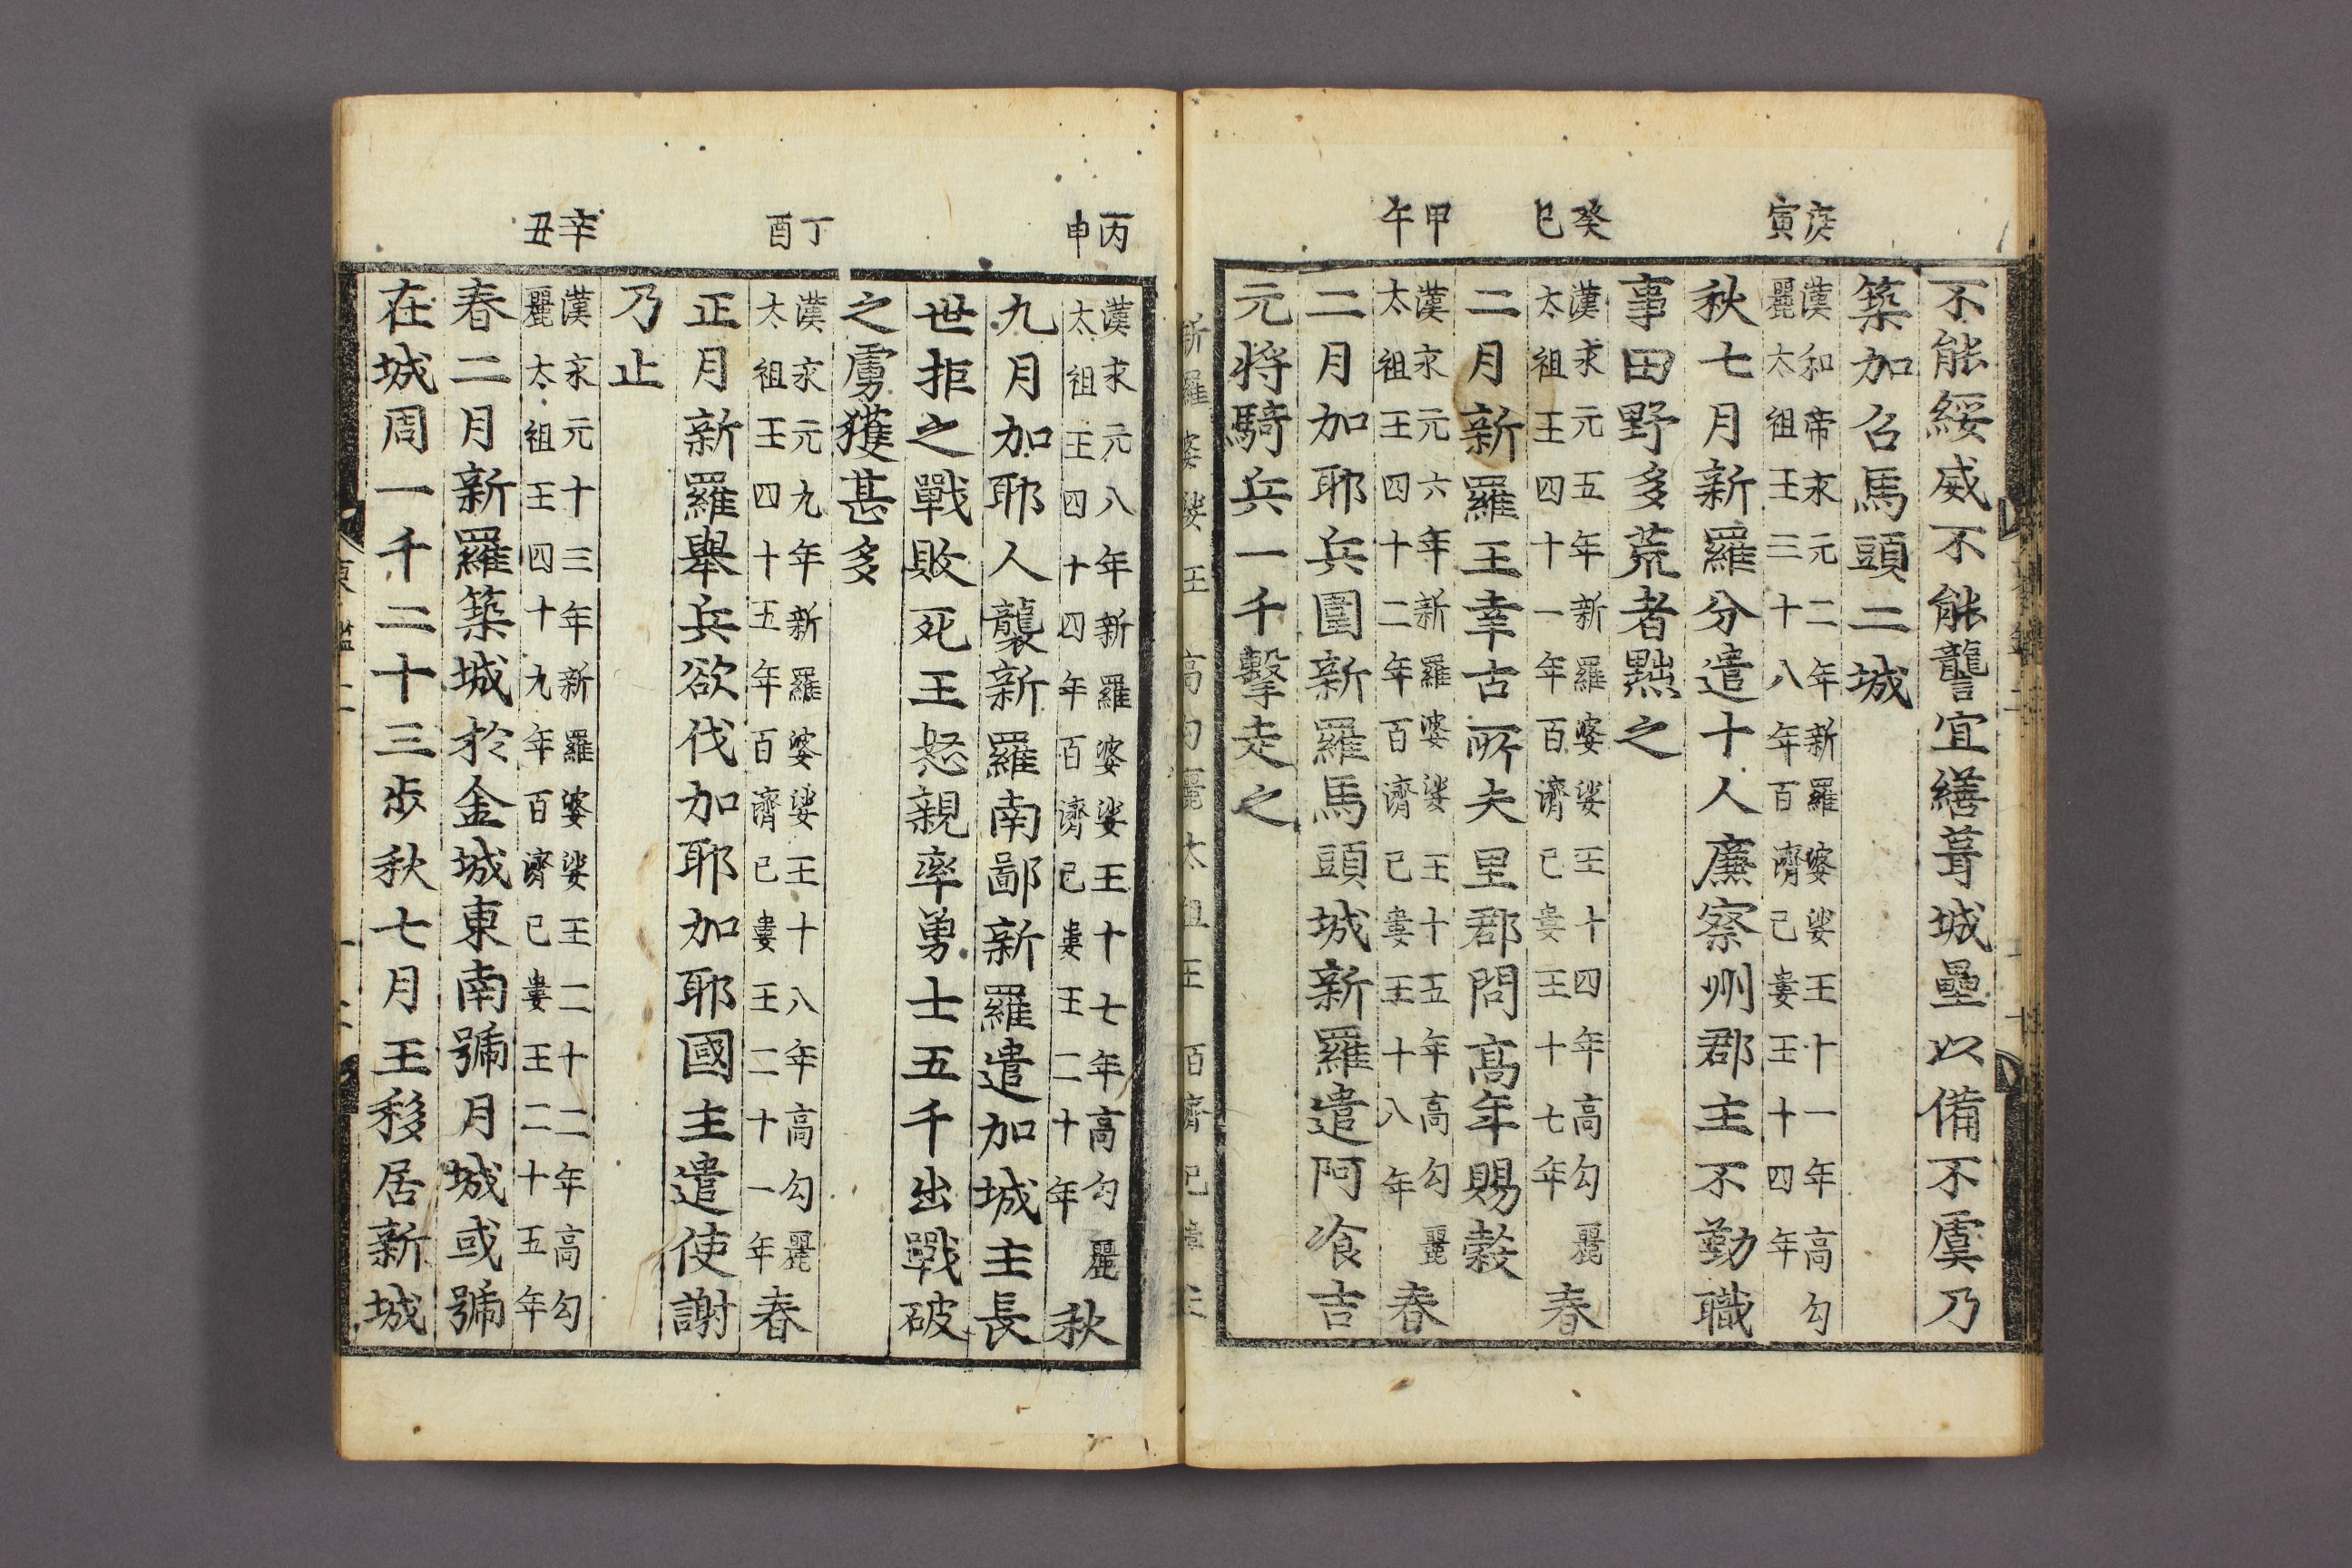 不能綏威不能讋宜繕葺城壘以備不虞乃
築加召馬頭二城
庚寅
漢和帝永元二年新羅婆娑王十一年高勾
麗太祖王三十八年百濟己婁王十四年
秋七月新羅分遣十人廉察州郡主不勤職
事田野多荒者黜之
癸巳
漢永元五年新羅婆娑王十四年高勾麗
太祖王四十一年百濟己婁王十七年
春
二月新羅王幸古所夫里郡問高年賜穀
甲午
漢永元六年新羅婆娑王十五年高勾麗
太祖王四十二年百濟己婁王十八年
春
二月加耶兵圍新羅馬頭城新羅遣阿飡吉
元將騎兵一千擊走之
新羅婆娑王 高勾麗太祖王 百濟己婁王
丙申
漢永元八年新羅婆娑王十七年高勾麗
太祖王四十四年百濟己婁王二十年
秋
九月加耶人襲新羅南鄙新羅遣加城主長
世拒之戰敗死王怒親率勇士五千出戰破
之虜獲甚多
丁酉
漢永元九年新羅婆娑王十八年高勾麗
太祖王四十五年百濟己婁王二十一年
春
正月新羅舉兵欲伐加耶加耶國主遣使謝
乃止
辛丑
漢永元十三年新羅婆娑王二十二年高勾
麗太祖王四十九年百濟己婁王二十五年
春二月新羅築城於金城東南號月城或號
在城周一千二十三步秋七月王移居新城